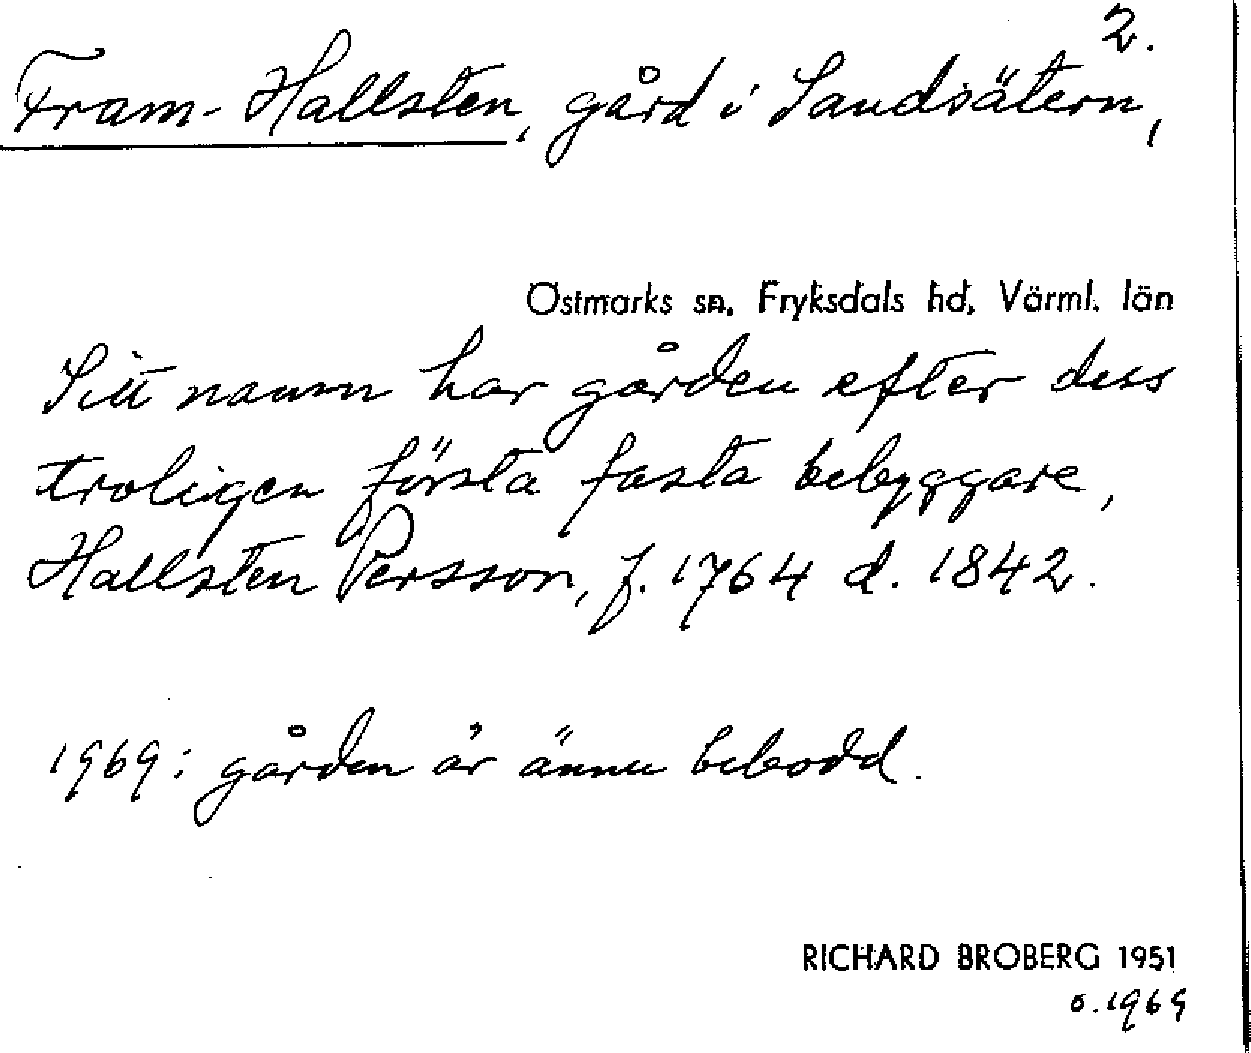 2.
Fram-Hallsten, gård i Sandsätern,
Östmarks sn, Fryksdals hd, Värml. län
Sitt namn har gården efter dess
troligen första fasta bebyggare,
Hallsten Persson, f. 1764 d. 1842.
1969: gården är ännu bebodd.
RICHARD BROBERG 1951
o. 1969